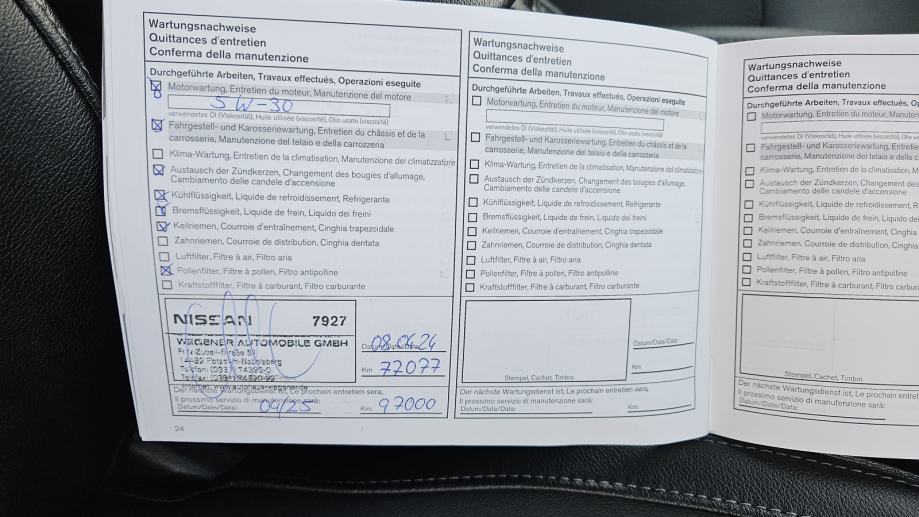 Wartungsnachweise
Quittances d'entretien
Conferma della manutenzione
Durchgeführte Arbeiten, Travaux effectués, Operazioni eseguite
Motorwartung, Entretien du moteur, Manutenzione del motore
5W-30
verwendetes Öl (Viskosität), Huile utilisée (viscosité), Olio usato (viscosità)
Fahrgestell- und Karosseriewartung, Entretien du châssis et de la
carrosserie, Manutenzione del telaio e della carrozzeria
Klima-Wartung, Entretien de la climatisation, Manutenzione del climatizzatore
Austausch der Zündkerzen, Changement des bougies d'allumage,
Cambiamento delle candele d'accensione
Kühlflüssigkeit, Liquide de refroidissement, Refrigerante
Bremsflüssigkeit, Liquide de frein, Liquido dei freini
Keilriemen, Courroie d'entraînement, Cinghia trapezoidale
Zahnriemen, Courroie de distribution, Cinghia dentata
Luftfilter, Filtre à air, Filtro aria
Pollenfilter, Filtre à pollen, Filtro antipolline
Kraftstofffilter, Filtre à carburant, Filtro carburante
NISSAN 7927
WEGENER AUTOMOBILE GMBH
Datum/Date/Data: 08.04.24
Km 77077
Der nächste Wartungsdienst ist, Le prochain entretien sera,
Il prossimo servizio di manutenzione sarà:
Datum/Date/Data: 04/25 Km: 97000
24
Wartungsnachweise
Quittances d'entretien
Conferma della manutenzione
Durchgeführte Arbeiten, Travaux effectués, Operazioni eseguite
Motorwartung, Entretien du moteur, Manutenzione del motore
verwendetes Öl (Viskosität), Huile utilisée (viscosité), Olio usato (viscosità)
Fahrgestell- und Karosseriewartung, Entretien du châssis et de la
carrosserie, Manutenzione del telaio e della carrozzeria
Klima-Wartung, Entretien de la climatisation, Manutenzione del climatizzatore
Austausch der Zündkerzen, Changement des bougies d'allumage,
Cambiamento delle candele d'accensione
Kühlflüssigkeit, Liquide de refroidissement, Refrigerante
Bremsflüssigkeit, Liquide de frein, Liquido dei freini
Keilriemen, Courroie d'entraînement, Cinghia trapezoidale
Zahnriemen, Courroie de distribution, Cinghia dentata
Luftfilter, Filtre à air, Filtro aria
Pollenfilter, Filtre à pollen, Filtro antipolline
Kraftstofffilter, Filtre à carburant, Filtro carburante
Datum/Date/Data
Km:
Stempel, Cachet, Timbro
Der nächste Wartungsdienst ist, Le prochain entretien sera,
Il prossimo servizio di manutenzione sarà:
Datum/Date/Data: Km:
Wartungsnachweise
Quittances d'entretien
Conferma della manutenzione
Durchgeführte Arbeiten, Travaux effectués, O
Motorwartung, Entretien du moteur, Manuten
verwendetes Öl (Viskosität), Huile utilisée (viscosité), O
Fahrgestell- und Karosseriewartung, Entre
carrosserie, Manutenzione del telaio e della
Klima-Wartung, Entretien de la climatisation, M
Austausch der Zündkerzen, Changement des
Cambiamento delle candele d'accensione
Kühlflüssigkeit, Liquide de refroidissement, R
Bremsflüssigkeit, Liquide de frein, Liquido dei
Keilriemen, Courroie d'entraînement, Cinghia
Zahnriemen, Courroie de distribution, Cinghia
Luftfilter, Filtre à air, Filtro aria
Pollenfilter, Filtre à pollen, Filtro antipolline
Kraftstofffilter, Filtre à carburant, Filtro carbura
Stempel, Cachet, Timbro
Der nächste Wartungsdienst ist, Le prochain entret
Il prossimo servizio di manutenzione sarà:
Datum/Date/Data: